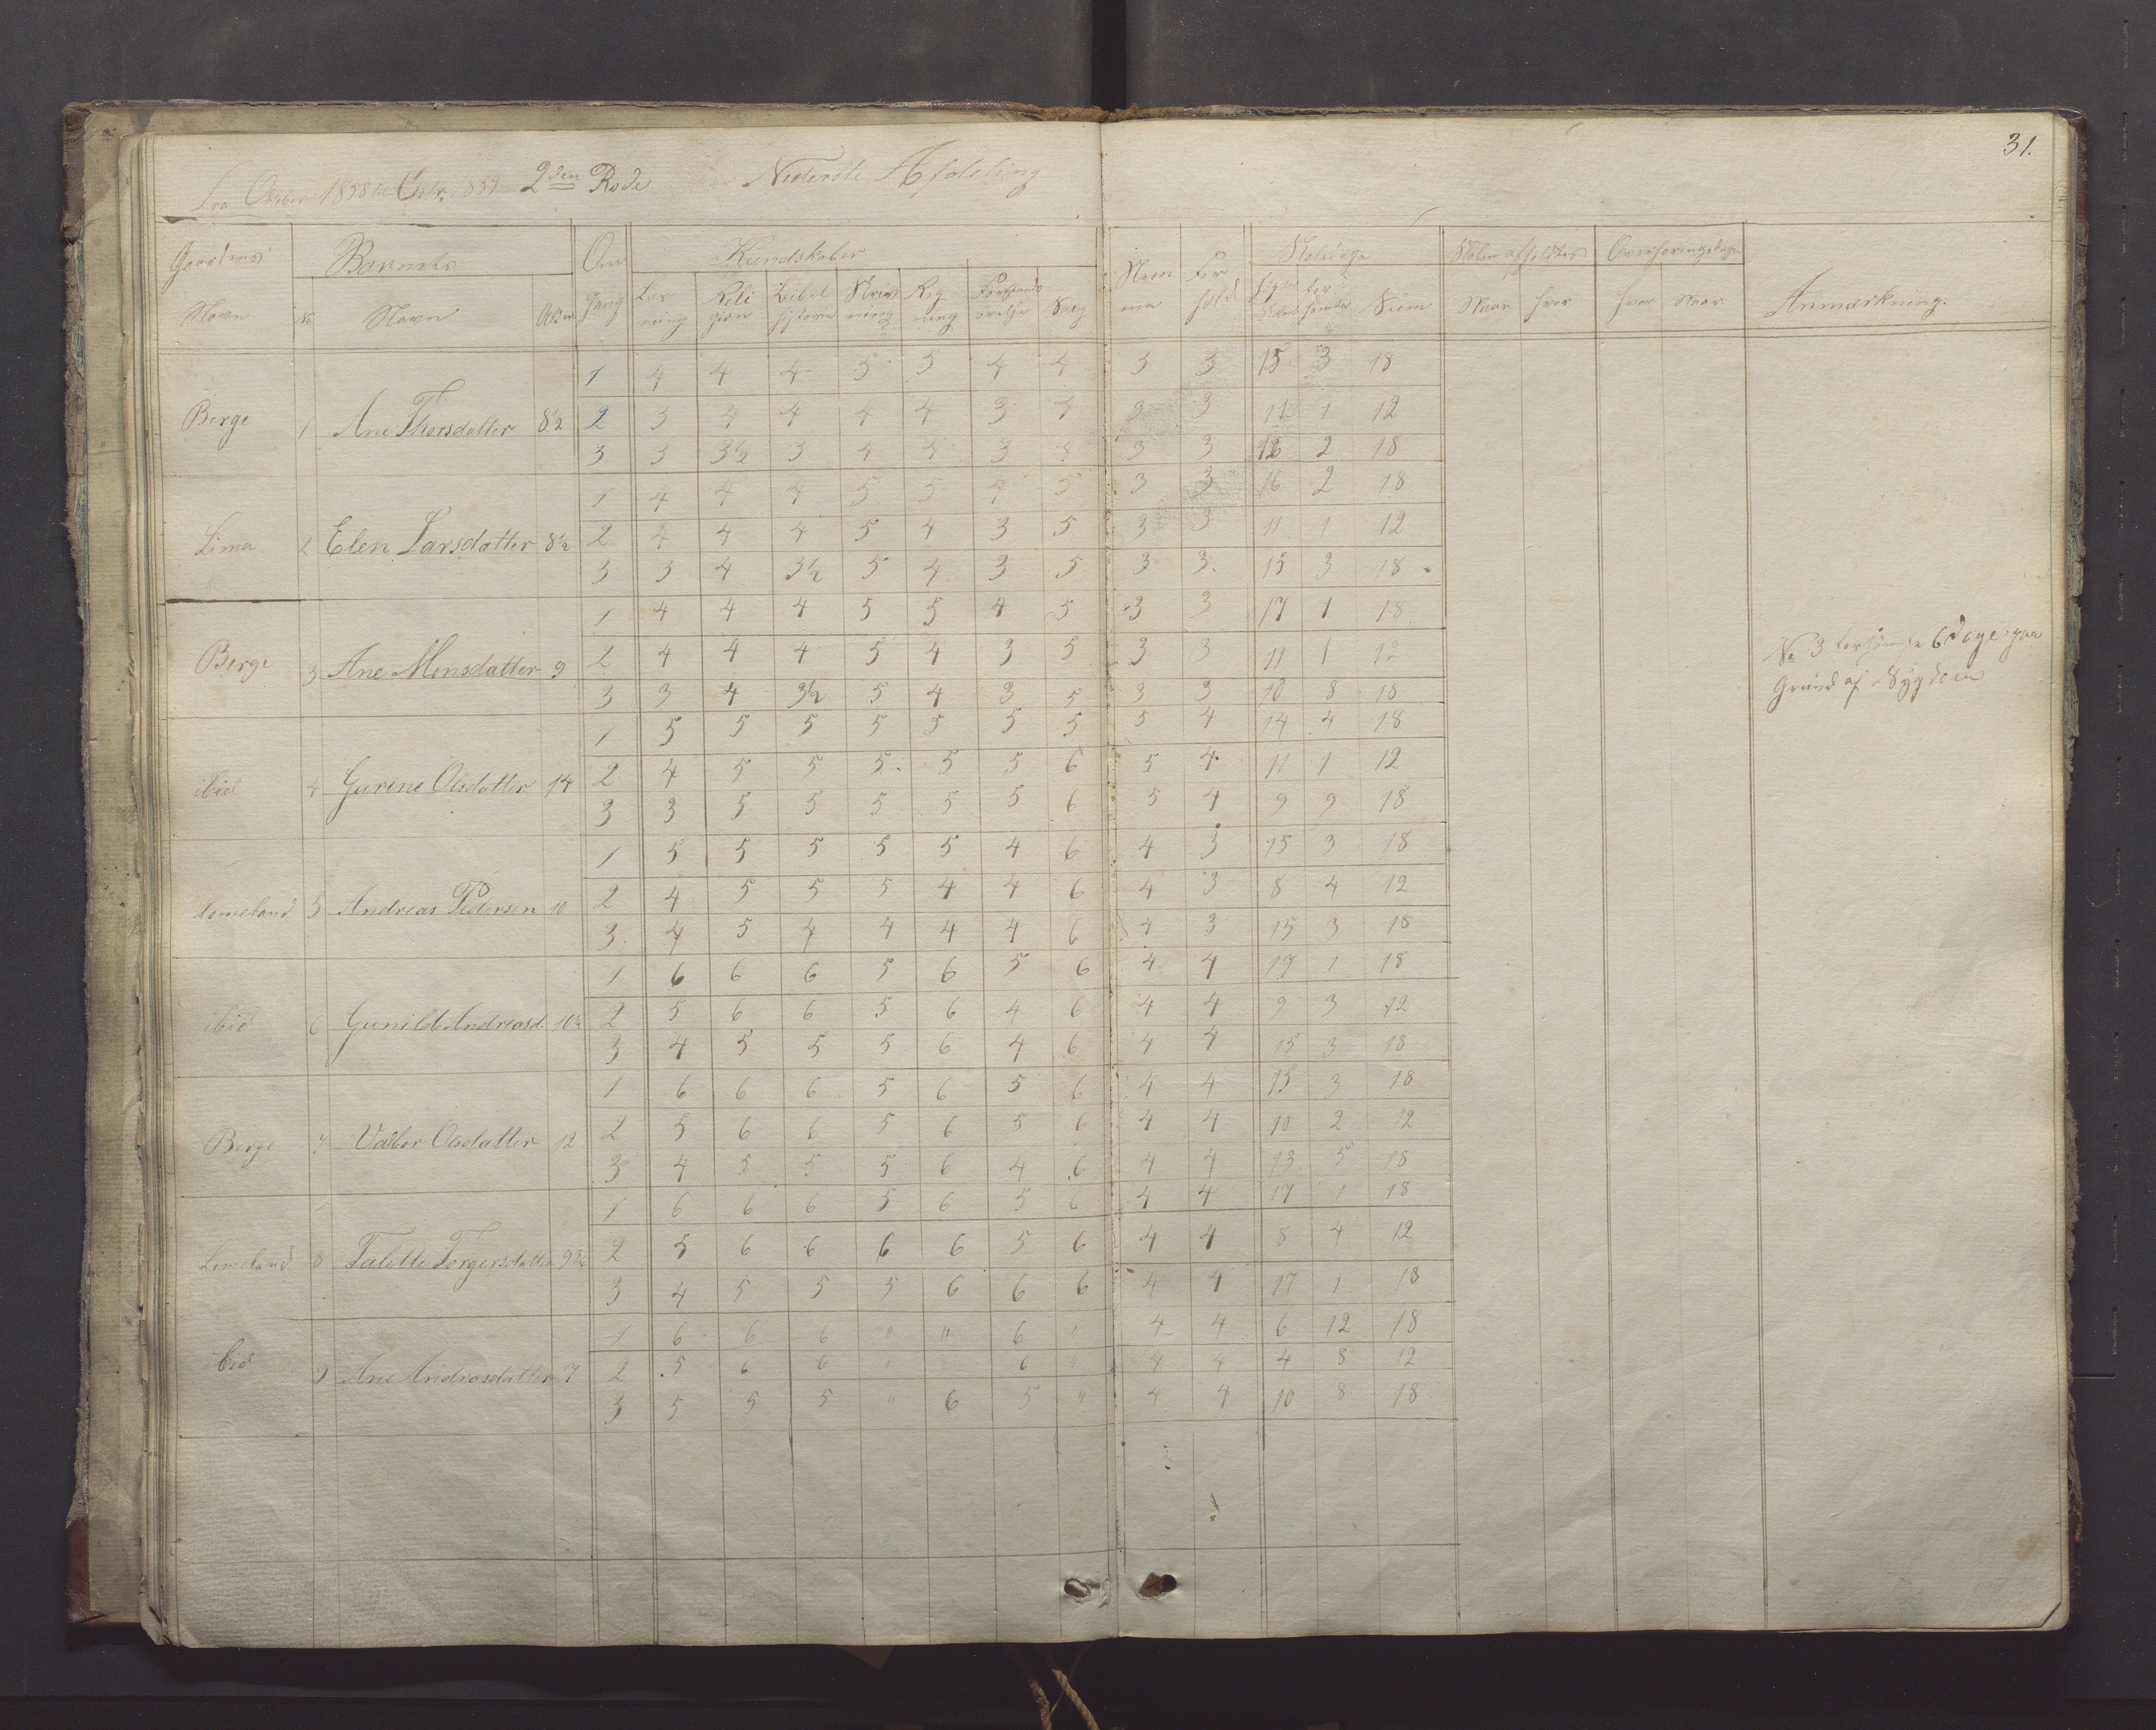 31.
Fra October 1858 til Octr. 1859 2den Rode Nederste Afdeling
Gaardens Barnets Om Kundskaber Nem For Skoledage Skolen afholdtes Overhøringsdage
Navn No Navn Alder gang Læs Reli Bibel Skriv Reg Forstands Sang me hold Summ Naar hvor hvor Naar Anmærkning.
ning gion historie ning ning øvelse sømte
1 4 4 4 5 5 4 4 3 3 15 3 18
Berge 1 Ane Thorsdatter 8½ 2 3 4 4 4 4 3 4 3 3 11 1 12
3 3 3½ 3 4 4 3 4 3 3 16 2 18
1 4 4 4 5 5 4 5 3 3 16 2 18
Lima 2 Elen Larsdatter 8½ 2 4 4 4 5 4 3 5 3 3 11 1 12
3 3 4 3½ 5 4 3 5 3 3. 15 3 18
1 4 4 4 5 5 4 5 3 3 17 1 18
Berge 3 Ane Monsdatter 9 2 4 4 4 5 4 3 5 3 3 11 1 12 No 3 forsømte 6 Dage paa
3 3 4 3½ 5 4 3 5 3 3 10 8 18 Grund af Sygdom
1 5 5 5 5 5 5 5 5 4 14 4 18
ibid 4 Gurine Olsdatter 14 2 4 5 5 5 5 5 6 5 4 11 1 12
3 3 5 5 5 5 5 6 5 4 9 9 18
1 5 5 5 5 5 4 6 4 3 15 3 18
Lomeland 5 Andreas Pedersen 10 2 4 5 5 5 4 4 6 4 3 8 4 12
3 4 5 4 4 4 4 6 4 3 15 3 18
1 6 6 6 5 6 5 6 4 4 17 1 18
ibid 6 Gunild Andreasd. 10½ 2 5 6 6 5 6 4 6 4 4 9 3 12
3 4 5 5 5 6 4 6 4 4 15 3 18
1 6 6 6 5 6 5 6 4 4 15 3 18
Berge 7 Valbor Olsdatter 12 2 5 6 6 5 6 5 6 4 4 10 2 12
3 4 5 5 5 6 4 6 4 4 13 5 18
1 6 6 6 5 6 5 6 4 4 17 1 18
Lomeland 8 Talette Torgersdatter 9¾ 2 5 6 6 6 6 5 6 4 4 8 4 12
3 4 5 5 5 6 6 6 4 4 17 1 18
1 6 6 6 " " 6 " 4 4 6 12 18
ibid 9 Ane Andreasdatter 7 2 5 6 6 " 6 " 4 4 4 8 12
3 5 5 5 " 6 5 " 4 4 10 8 18